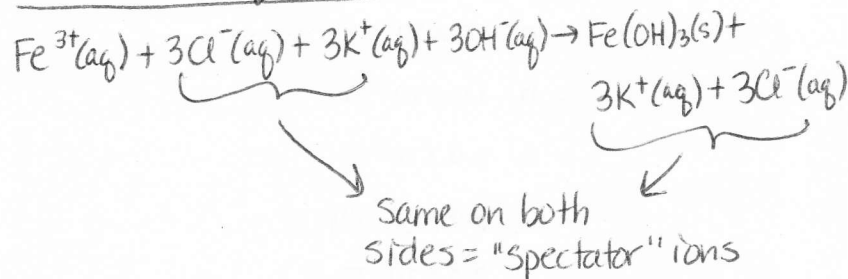 Fe³⁺(aq) + 3Cl⁻(aq) + 3K⁺(aq) + 3OH⁻(aq) → Fe(OH)₃(s) +
3K⁺(aq) + 3Cl⁻(aq)
same on both
sides = "spectator" ions